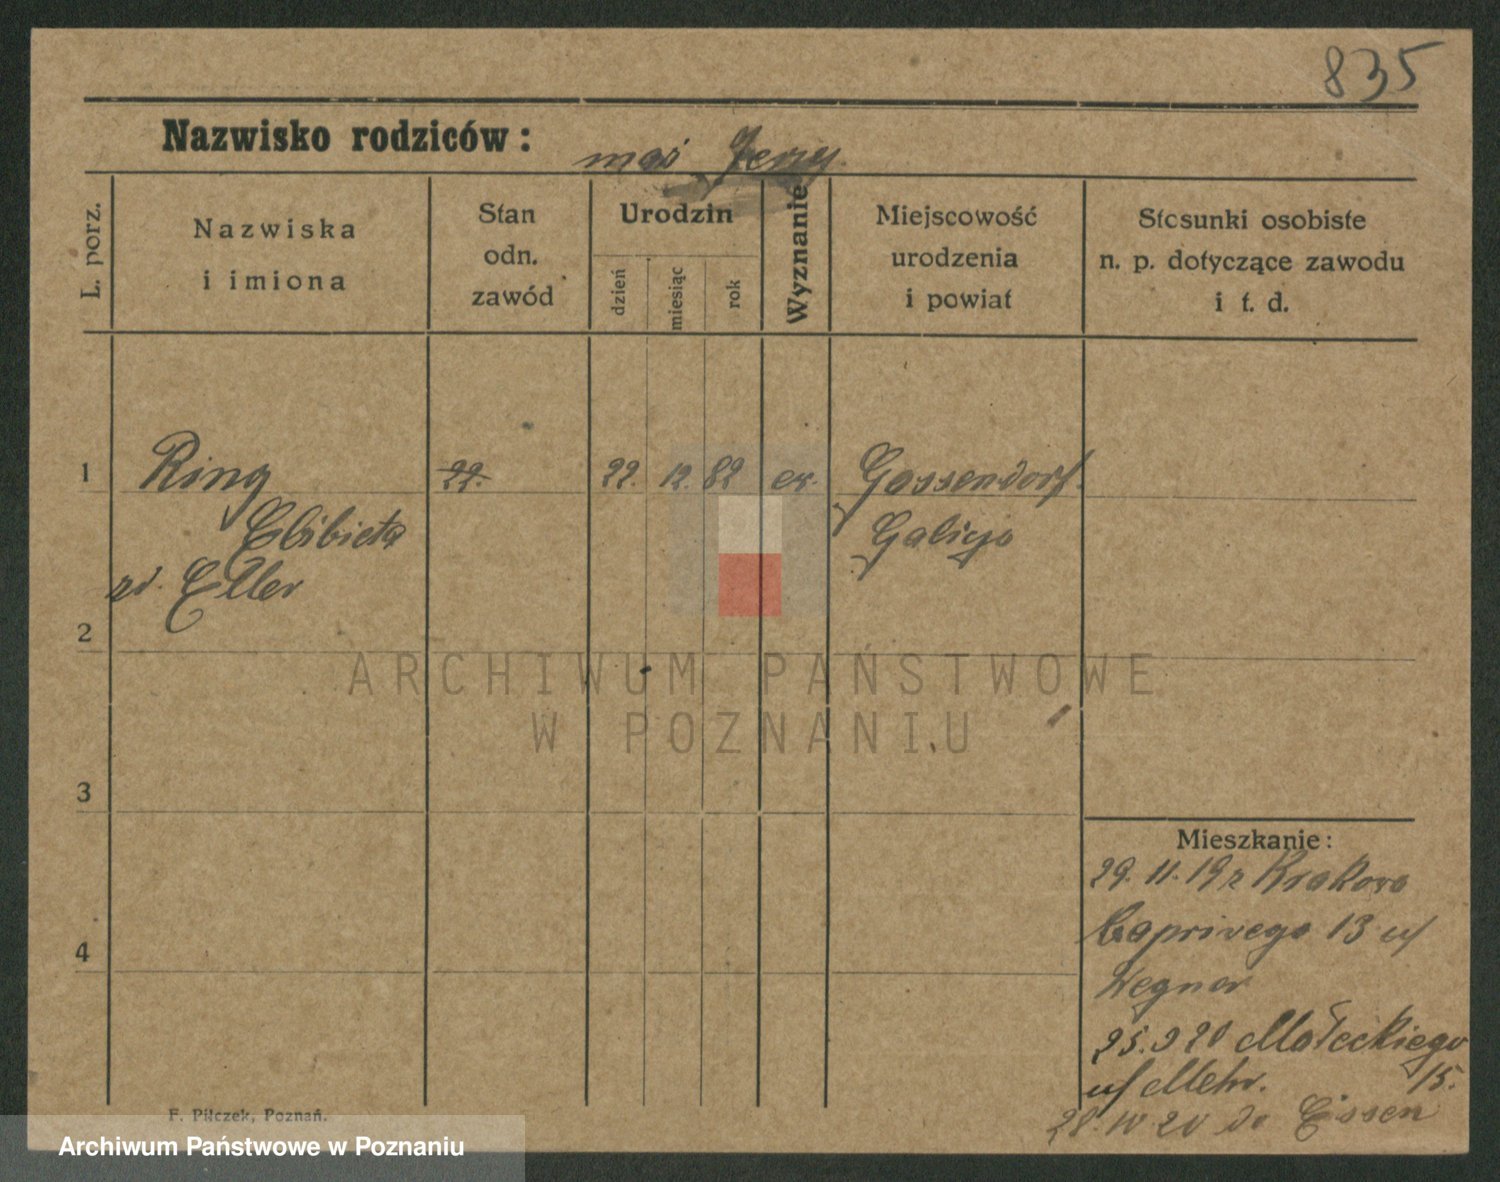 835
Nazwisko rodziców: mąż Jerzy.
L. porz.
Nazwiska
i imiona
Stan
odn.
zawód
Urodzin
dzień
miesiąc
rok
Wyznanie
Miejscowość
urodzenia
i powiat
Stosunki osobiste
n. p. dotyczące zawodu
i t. d.
1 Ring 22. 22. 12. 82 ew. Gassendorf
Elżbieta Galicja
zd. Eller
2
3
4
Mieszkanie:
29. 11. 19 z Krakowa
Caprivego 13 u/
Wegner
25.9 20 Małeckiego
u/ Mehr. 15.
28. 10 20 do Essen
F. Pilczek, Poznań.
ARCHIWUM PAŃSTWOWE
W POZNANIU
Archiwum Państwowe w Poznaniu